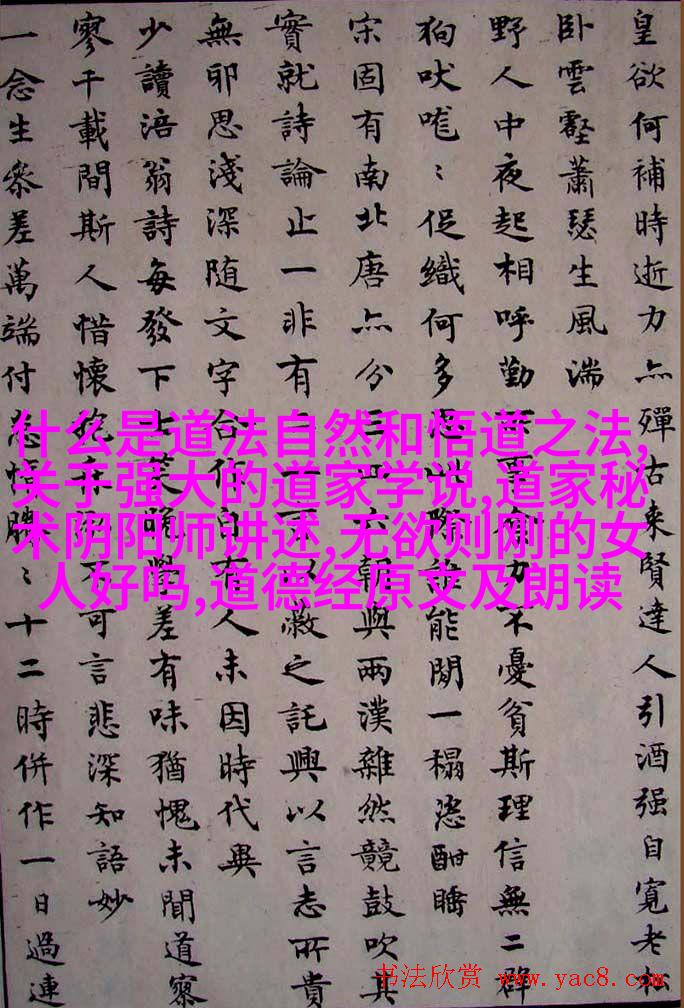 皇欲何補時逝力亦殫古來賢達人引酒强自寬老
卧雲壑蕭瑟生風湍
野人中夜起相呼勤力不憂貧斯理信無二群
狗吠嘊〻促織何多能閒一榻恣酣睡
宋固有南北唐亦分三四六朝與兩漢雜然競鼓吹其
實就詩論止一非有二可以蔽之託興以言志所貴
無邪思淺深随文字合作自有人未因時代異
少讀涪翁詩每發下士笑晚學差有味猶愧未聞道寥
寥千載間斯人惜懷不可言悲深知語妙
一念生參差萬端付〻十二時併作一日過連
什么是道法自然和悟道之法,
关于强大的道家学说,道家秘
术阴阳师讲述,无欲则刚的女
人好吗,道德经原文及朗读
书法欣赏 www.yac8.com